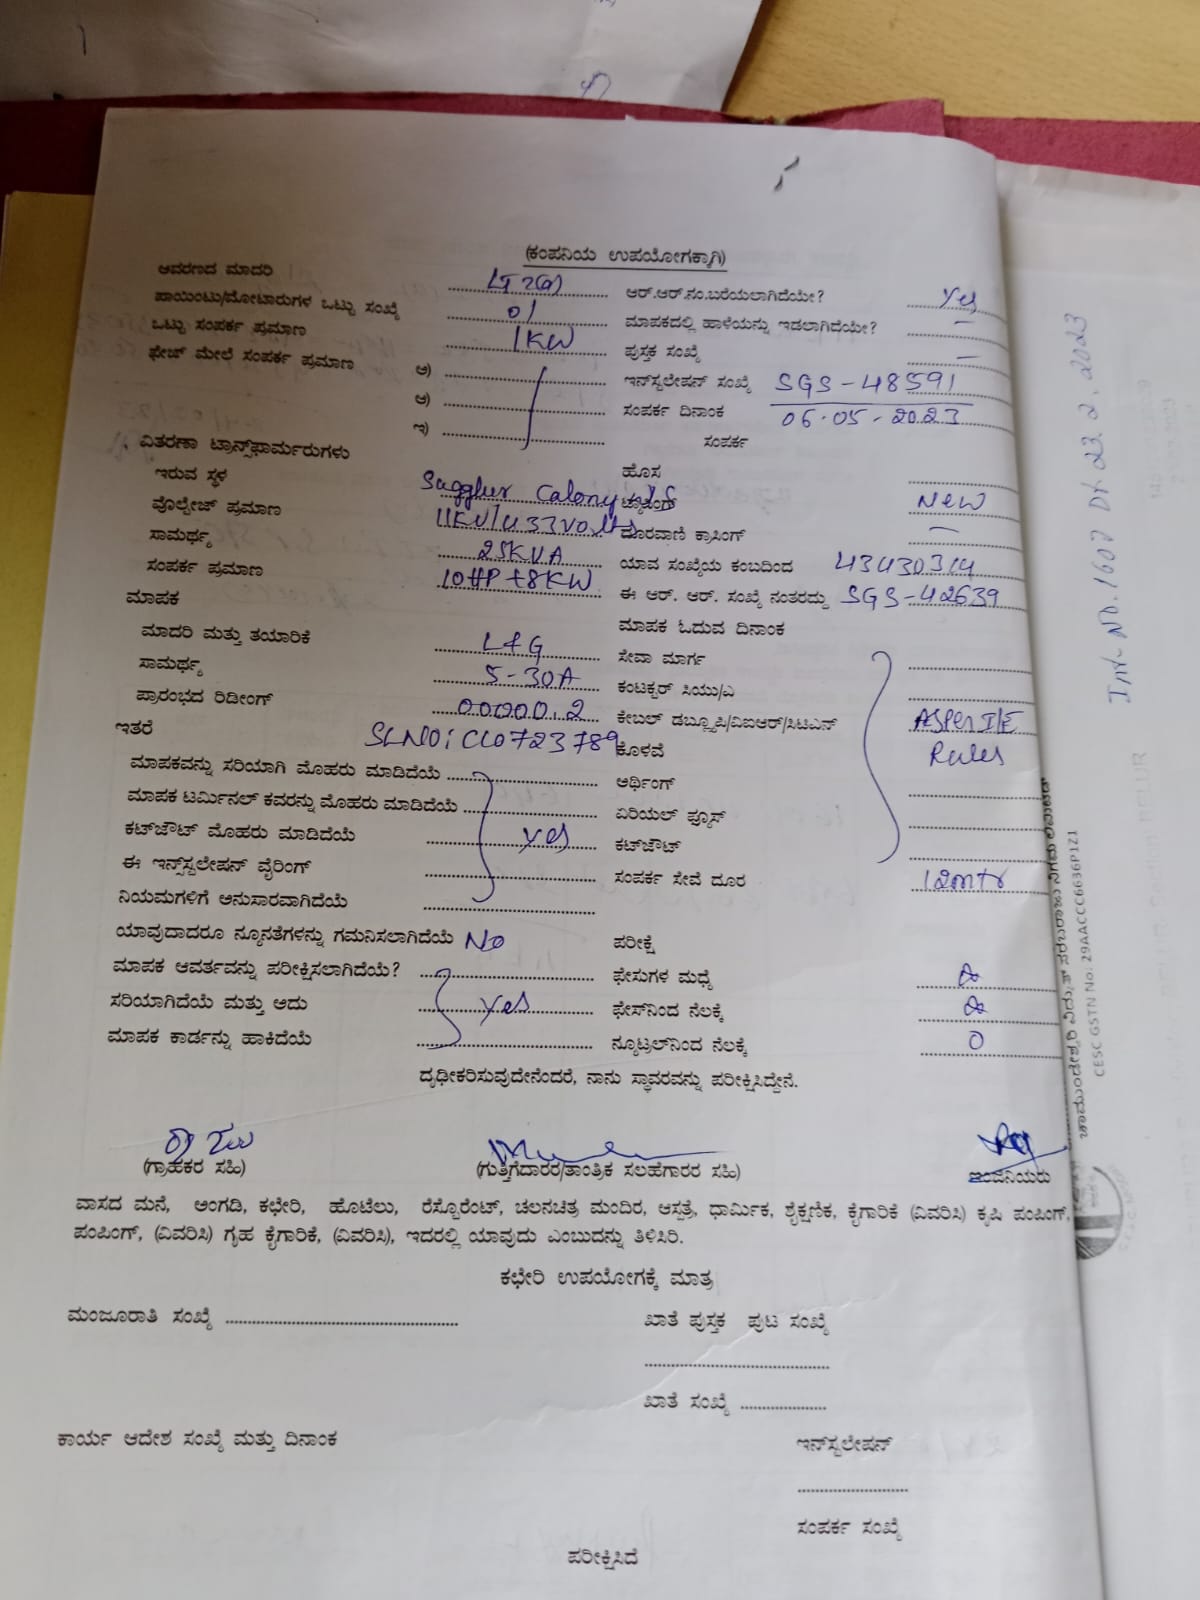 (ಕಂಪನಿಯ ಉಪಯೋಗಕ್ಕಾಗಿ)
ಆವರಣದ ಮಾದರಿ LT 2(a) ಆರ್.ಆರ್.ನಂ.ಬರೆಯಲಾಗಿದೆಯೇ? Yes
ಪಾಯಿಂಟು/ಮೋಟಾರುಗಳ ಒಟ್ಟು ಸಂಖ್ಯೆ 01 ಮಾಪಕದಲ್ಲಿ ಹಾಳೆಯನ್ನು ಇಡಲಾಗಿದೆಯೇ? —
ಒಟ್ಟು ಸಂಪರ್ಕ ಪ್ರಮಾಣ 1KW ಪುಸ್ತಕ ಸಂಖ್ಯೆ —
ಫೇಜ್ ಮೇಲೆ ಸಂಪರ್ಕ ಪ್ರಮಾಣ ಅ) ಇನ್‌ಸ್ಟಲೇಷನ್ ಸಂಖ್ಯೆ SGS-48591
ಆ) ಸಂಪರ್ಕ ದಿನಾಂಕ 06.05.2023
ಇ) ಸಂಪರ್ಕ
ವಿತರಣಾ ಟ್ರಾನ್ಸ್‌ಫಾರ್ಮರುಗಳು
ಇರುವ ಸ್ಥಳ Colony ಹೊಸ
ವೊಲ್ಟೇಜ್ ಪ್ರಮಾಣ 11KV/433Volts New
ಸಾಮರ್ಥ್ಯ 25KVA ದೂರವಾಣಿ ಕ್ರಾಸಿಂಗ್ —
ಸಂಪರ್ಕ ಪ್ರಮಾಣ 10HP+8KW ಯಾವ ಸಂಖ್ಯೆಯ ಕಂಬದಿಂದ 43430314
ಮಾಪಕ ಈ ಆರ್. ಆರ್. ಸಂಖ್ಯೆ ನಂತರದ್ದು SGS-42639
ಮಾಪಕ ಓದುವ ದಿನಾಂಕ
ಮಾದರಿ ಮತ್ತು ತಯಾರಿಕೆ L&G ಸೇವಾ ಮಾರ್ಗ
ಸಾಮರ್ಥ್ಯ 5-30A ಕಂಟಕ್ಟರ್ ಸಿಯು/ಎ
ಪ್ರಾರಂಭದ ರಿಡೀಂಗ್ 00000.2 ಕೇಬಲ್ ಡಬ್ಲ್ಯೂಪಿ/ವಿಐಆರ್/ಸಿಟಿಎಸ್ As per I/E
ಇತರೆ SLNO: CC0723789 ಕೊಳವೆ Rules
ಮಾಪಕವನ್ನು ಸರಿಯಾಗಿ ಮೊಹರು ಮಾಡಿದೆಯೆ ಅರ್ಥಿಂಗ್
ಮಾಪಕ ಟರ್ಮಿನಲ್ ಕವರನ್ನು ಮೊಹರು ಮಾಡಿದೆಯೆ ಏರಿಯಲ್ ಫ್ಯೂಸ್
ಕಟ್‌ಔಟ್ ಮೊಹರು ಮಾಡಿದೆಯೆ Yes ಕಟ್‌ಔಟ್
ಈ ಇನ್‌ಸ್ಟಲೇಷನ್ ವೈರಿಂಗ್ ಸಂಪರ್ಕ ಸೇವೆ ದೂರ 12mtr
ನಿಯಮಗಳಿಗೆ ಅನುಸಾರವಾಗಿದೆಯೆ
ಯಾವುದಾದರೂ ನ್ಯೂನತೆಗಳನ್ನು ಗಮನಿಸಲಾಗಿದೆಯೆ NO ಪರೀಕ್ಷೆ
ಮಾಪಕ ಆವರ್ತವನ್ನು ಪರೀಕ್ಷಿಸಲಾಗಿದೆಯೆ? ಫೇಸುಗಳ ಮಧ್ಯೆ ∞
ಸರಿಯಾಗಿದೆಯೆ ಮತ್ತು ಅದು Yes ಫೇಸ್‌ನಿಂದ ನೆಲಕ್ಕೆ ∞
ಮಾಪಕ ಕಾರ್ಡನ್ನು ಹಾಕಿದೆಯೆ ನ್ಯೂಟ್ರಲ್‌ನಿಂದ ನೆಲಕ್ಕೆ 0
ದೃಢೀಕರಿಸುವುದೇನೆಂದರೆ, ನಾನು ಸ್ಥಾವರವನ್ನು ಪರೀಕ್ಷಿಸಿದ್ದೇನೆ.
(ಗ್ರಾಹಕರ ಸಹಿ) (ಗುತ್ತಿಗೆದಾರರ/ತಾಂತ್ರಿಕ ಸಲಹೆಗಾರರ ಸಹಿ) ಇಂಜಿನಿಯರು
ವಾಸದ ಮನೆ, ಅಂಗಡಿ, ಕಛೇರಿ, ಹೊಟೆಲು, ರೆಸ್ಟೋರೆಂಟ್, ಚಲನಚಿತ್ರ ಮಂದಿರ, ಆಸ್ಪತ್ರೆ, ಧಾರ್ಮಿಕ, ಶೈಕ್ಷಣಿಕ, ಕೈಗಾರಿಕೆ (ವಿವರಿಸಿ) ಕೃಷಿ ಪಂಪಿಂಗ್,
ಪಂಪಿಂಗ್, (ವಿವರಿಸಿ) ಗೃಹ ಕೈಗಾರಿಕೆ, (ವಿವರಿಸಿ), ಇದರಲ್ಲಿ ಯಾವುದು ಎಂಬುದನ್ನು ತಿಳಿಸಿರಿ.
ಕಛೇರಿ ಉಪಯೋಗಕ್ಕೆ ಮಾತ್ರ
ಮಂಜೂರಾತಿ ಸಂಖ್ಯೆ ಖಾತೆ ಪುಸ್ತಕ ಪುಟ ಸಂಖ್ಯೆ
ಖಾತೆ ಸಂಖ್ಯೆ
ಕಾರ್ಯ ಆದೇಶ ಸಂಖ್ಯೆ ಮತ್ತು ದಿನಾಂಕ ಇನ್‌ಸ್ಟಲೇಷನ್
ಸಂಪರ್ಕ ಸಂಖ್ಯೆ
ಪರೀಕ್ಷಿಸಿದೆ
ಚಾಮುಂಡೇಶ್ವರಿ ವಿದ್ಯುತ್ ಸರಬರಾಜು ನಿಗಮ
CESC GSTN No: 29AACCC6636P1Z1
No. 1607 Dt 23.2.2023